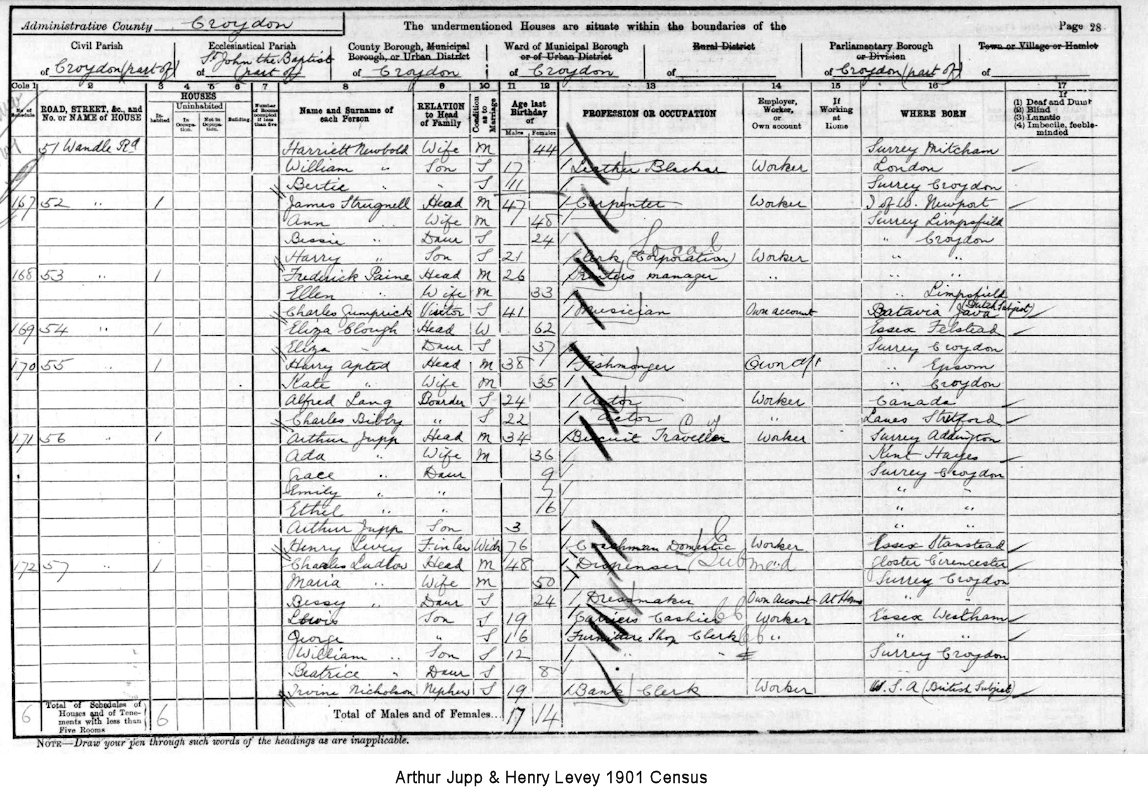 Administrative County Croydon The undermentioned Houses are situate within the boundaries of the Page 28
Civil Parish Ecclesiastical Parish County Borough, Municipal Borough, or Urban District Ward of Municipal Borough or of Urban District Rural District Parliamentary Borough or Division Town or Village or Hamlet
of Croydon (part of) of St John the Baptist (part of) of Croydon of Croydon of of Croydon (part of) of
Cols 1 2 3 4 5 6 7 8 9 10 11 12 13 14 15 16 17
No. of Schedule ROAD, STREET, &c., and No. or NAME of HOUSE HOUSES Inhabited Uninhabited In Occupation. Not in Occupation. Building. Number of Rooms occupied if less than five Name and Surname of each Person RELATION to Head of Family Condition as to Marriage Age last Birthday of Males Females PROFESSION OR OCCUPATION Employer, Worker, or Own account If Working at Home WHERE BORN If (1) Deaf and Dumb (2) Blind (3) Lunatic (4) Imbecile, feeble-minded
51 Wandle Rd Harriett Newbold Wife M 44 Surrey Mitcham
William " Son S 17 Worker London
Bertie " " S 11 Surrey Croydon
167 52 " 1 James Strugnell Head M 47 Carpenter Worker I of W. Newport
Ann " Wife M 48 Surrey Limpsfield
Bessie " Daur S 24 " Croydon
Harry " Son S 21 Clerk (Corporation) Local Worker " "
168 53 " 1 Frederick Paine Head M 26 manager " " "
Ellen " Wife M 33 " Limpsfield
Charles Visitor S 41 Musician Own account Batavia Java (Dutch Subject)
169 54 " 1 Eliza Clough Head W 62 Essex Felstead
Eliza " Daur S 37 Surrey Croydon
170 55 " 1 Harry Apted Head M 38 Fishmonger Own a/c " Epsom
Kate " Wife M 35 " Croydon
Alfred Lang Boarder S 24 Actor Worker Canada
Charles Bibby " S 22 Actor " Lancs Stretford
171 56 " 1 Arthur Jupp Head M 34 Biscuit Traveller Worker Surrey Addington
Ada " Wife M 36 Kent Hayes
Grace " Daur 9 Surrey Croydon
Emily " " 7 " "
Ethel " " 6 " "
Arthur Jupp Son 3 " "
Henry Levey Widr 76 Coachman Domestic Worker Essex Stanstead
172 57 " 1 Charles Ludlow Head M 48 Dispenser Gloster Cirencester
Maria " Wife M 50 Surrey Croydon
Bessy " Daur S 24 Dressmaker Own account At Home " "
Lewis Son S 19 Carriers Cashier Worker Essex Westham
George " S 16 Furniture Shop Clerk " " "
William " Son S 12 " " Surrey Croydon
Beatrice " Daur S 8 " "
Irvine Nicholson Nephew S 19 Bank Clerk Worker U.S.A (British Subject)
6 Total of Schedules of Houses and of Tenements with less than Five Rooms 6 Total of Males and of Females... 17 14
NOTE—Draw your pen through such words of the headings as are inapplicable.
Arthur Jupp & Henry Levey 1901 Census